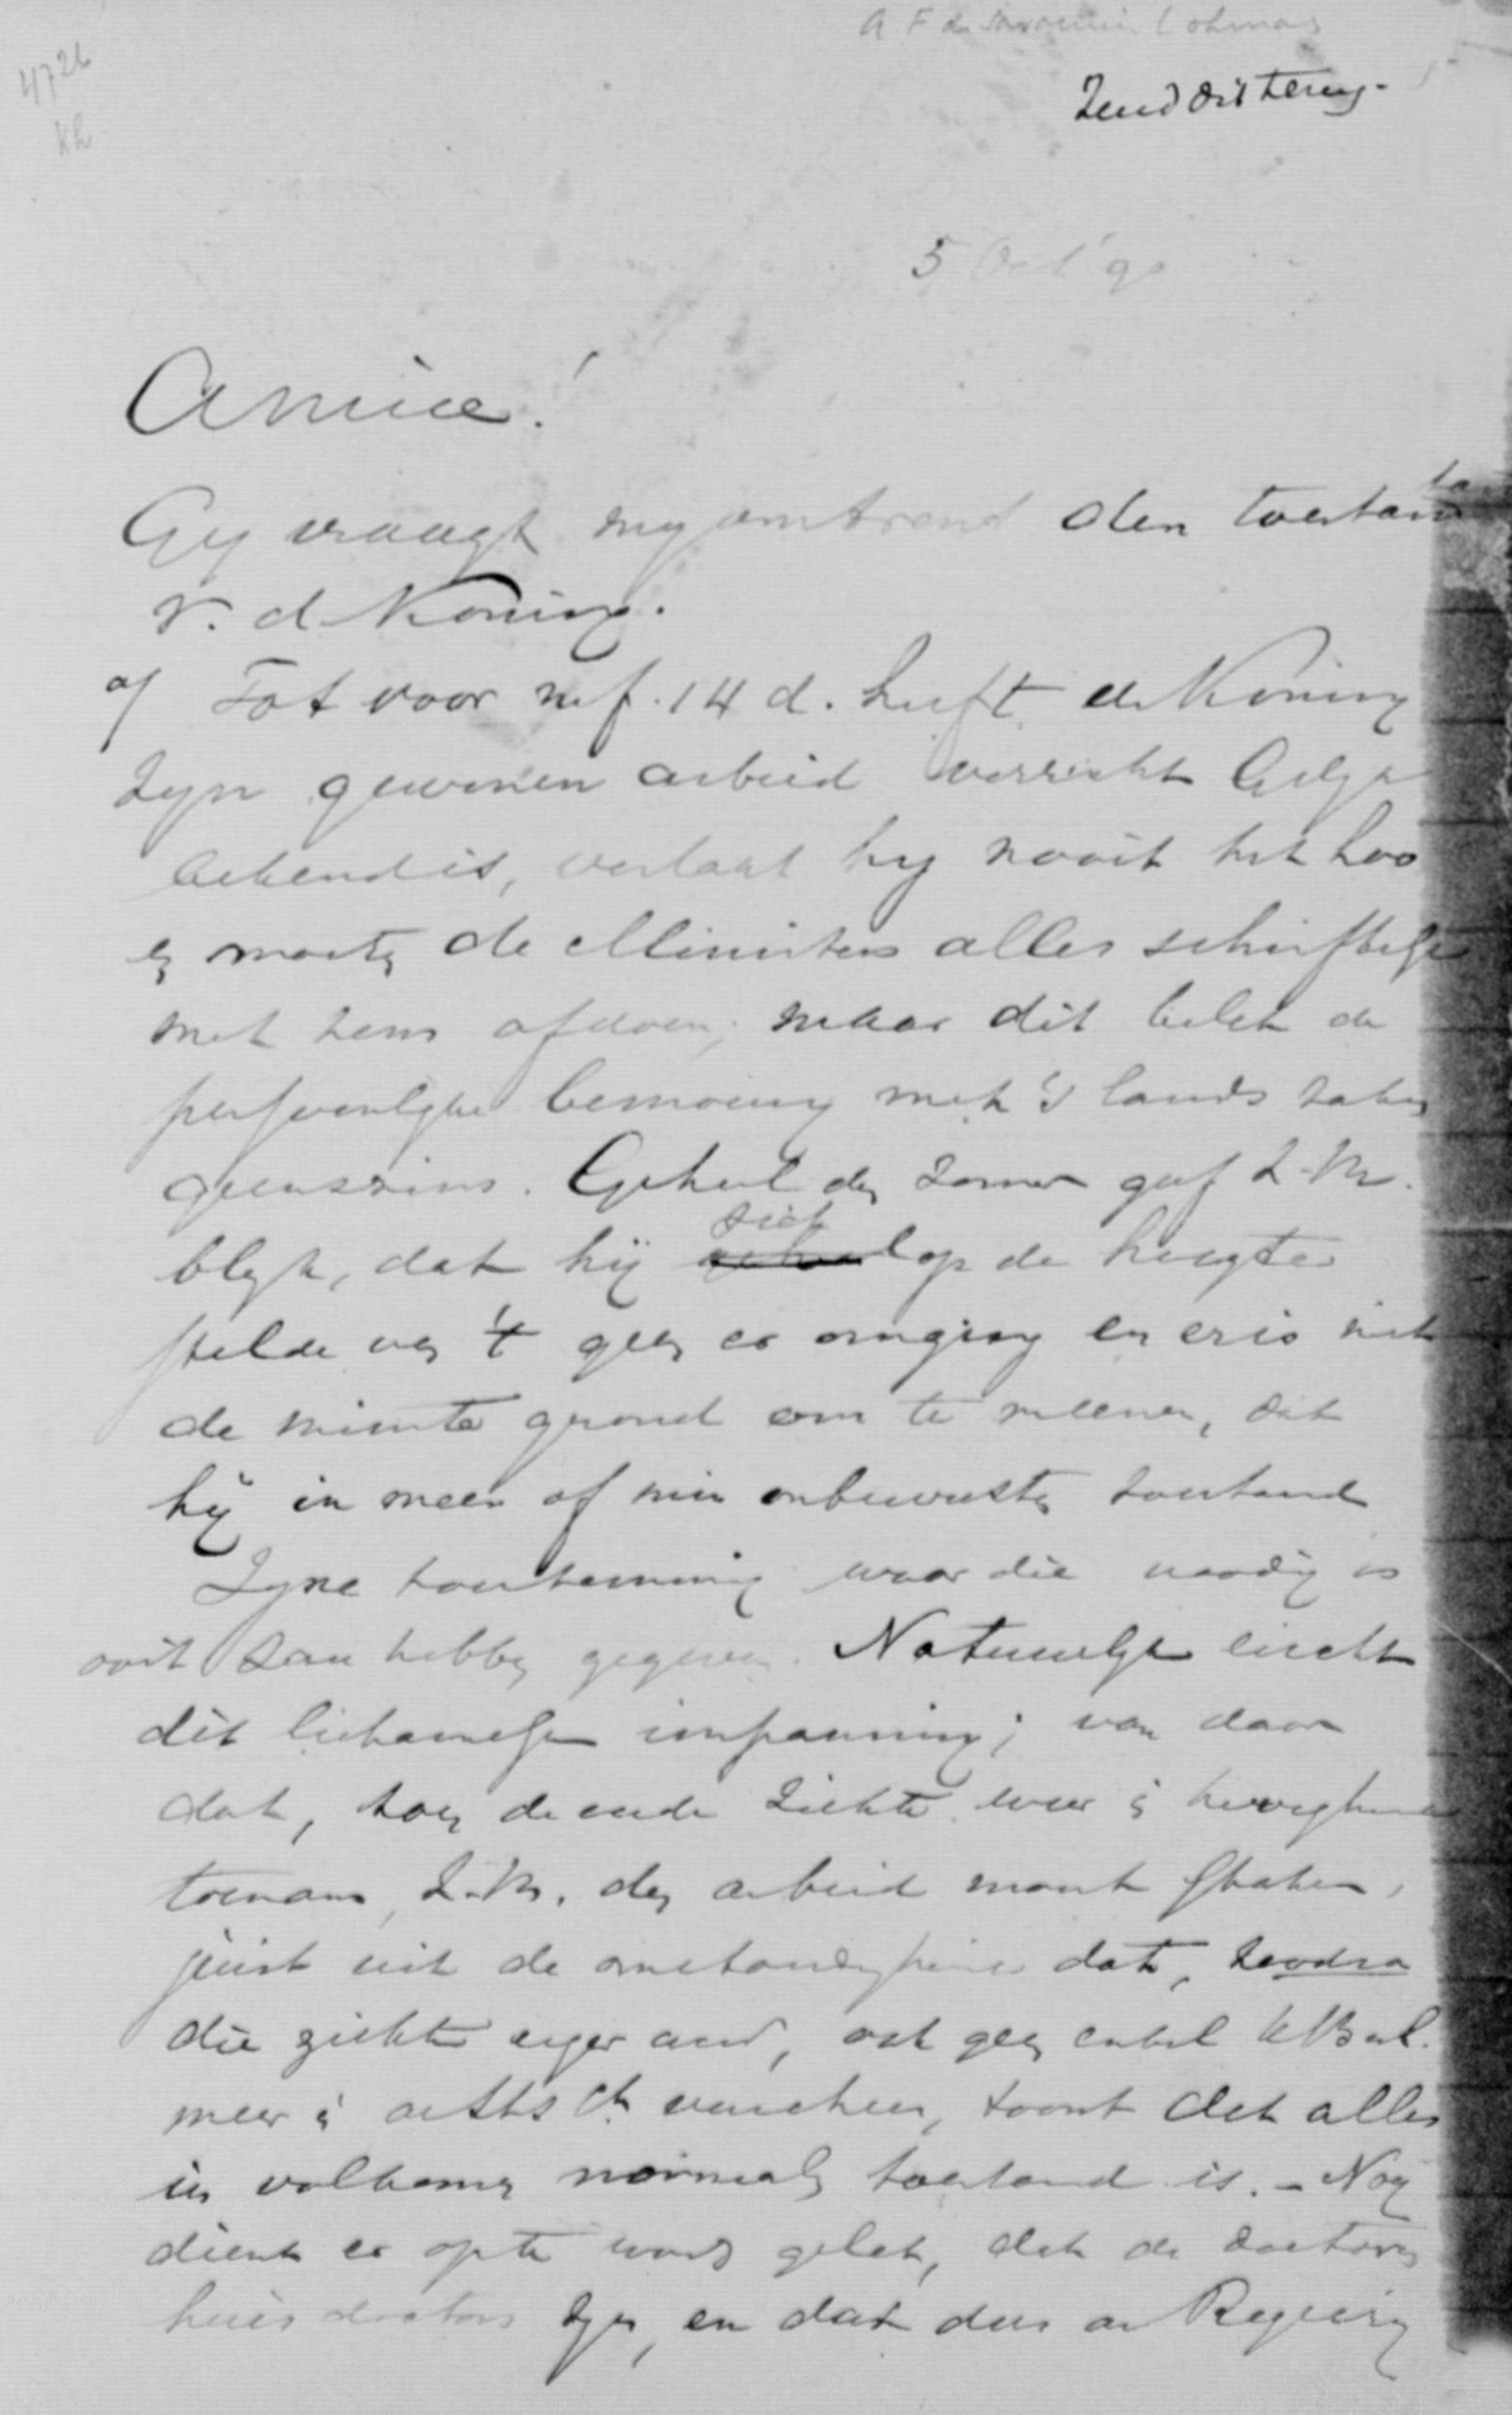 4726
Kh
A F de Savornin Lohman
Zend dit terug.
5 Oct '90
Amice!
Gy vraagt my omtrend den toestand
v. d Koning.
a/ Tot voor 14 d. heeft de Koning
Zyn gewonen arbeid verricht Gelyk
bekend is, verlaat hy nooit het Loo
en moeten de Ministers alles schriftelyk
met hem afdoen; maar dit belet de
persoonlyke bemoeiing met 's lands zaken
geenszins. Geheel den zomer gaf Z.M.
blyk, dat hij zich op de hoogte
stelde van 't geen er omging en er is niet
de minste grond om te meenen, dat
hij in meer of min onbewusten toestand
Zyne toestemming waar die noodig is
ooit zou hebben gegeven. Natuurlyk eischt
dit lichamelyke inspanning; van daar
dat, toen de oude ziekte weer in hevigheid
toenam, Z.M. den arbeid moest staken,
juist uit de omstandigheid dat, zoodra
die ziekte erger werd, ook geen enkel KBesl.
meer in de Stsct verscheen, toont dat alles
in volkomen normalen toestand is. - Nog
dient er op te word gelet, dat de doctoren
huisdoctors zyn, en dat dus de Regeering